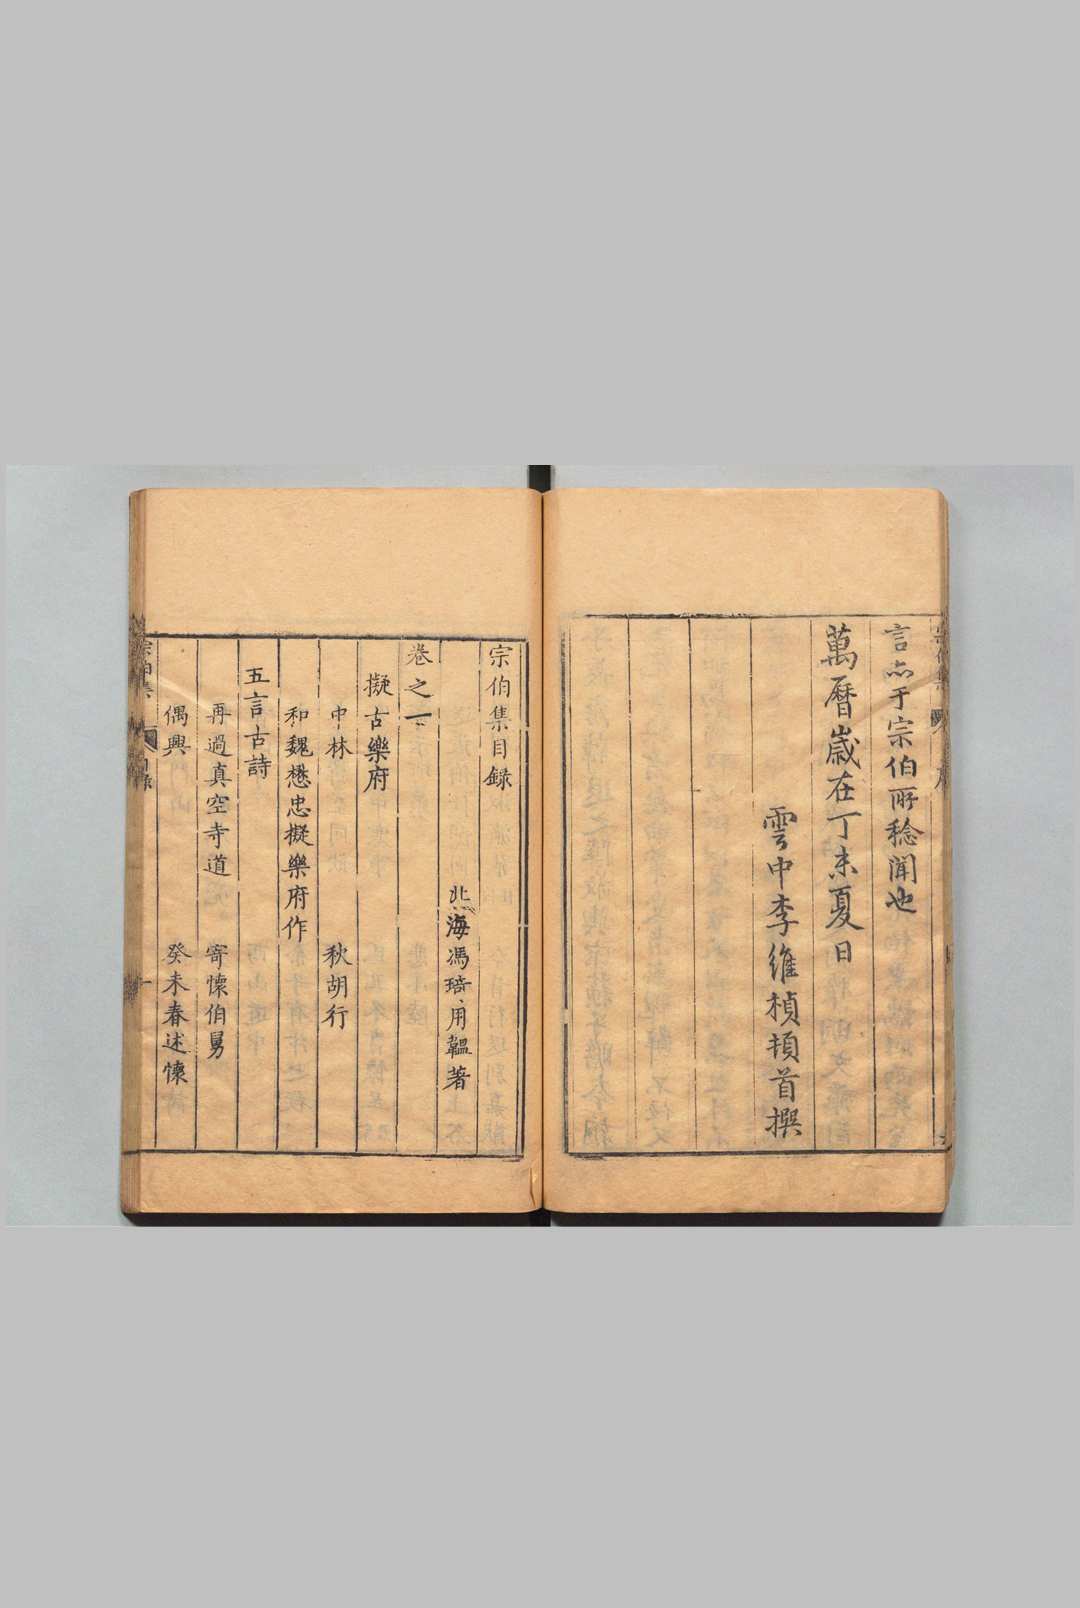 言亦于宗伯所稔聞也
萬曆歲在丁未夏日
雲中李維楨頓首撰
宗伯集目錄
北海馮琦用韞著
卷之一
擬古樂府
中林 秋胡行
和魏懋忠擬樂府作
五言古詩
再過真空寺道 寄懷伯舅
偶興 癸未春述懷